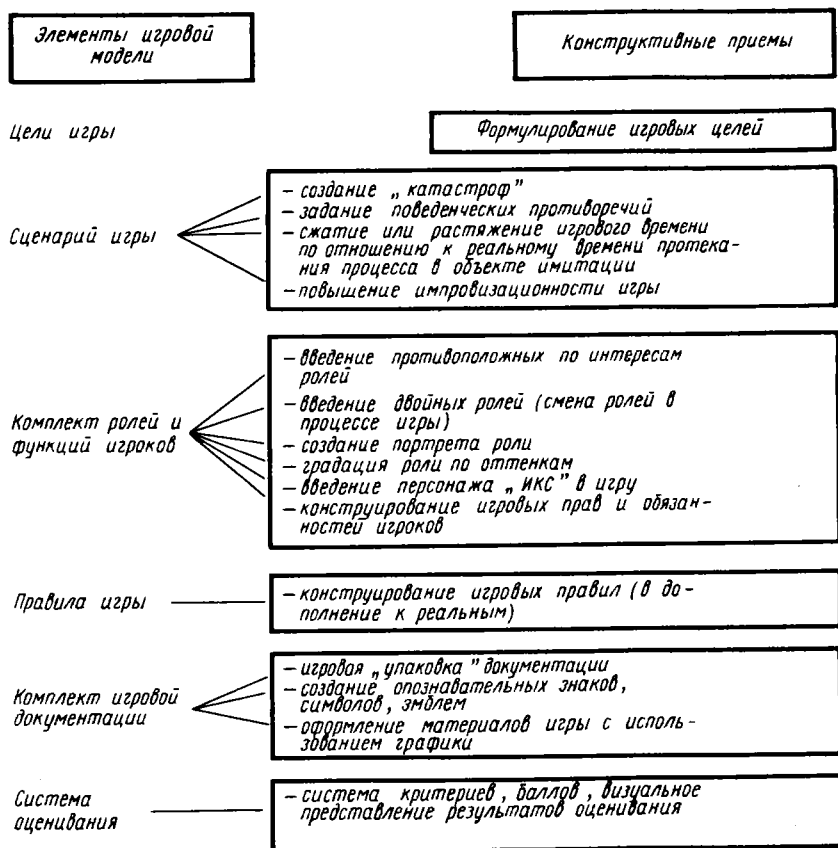 Элементы игровой
модели
Конструктивные приемы
Цели игры
Формулирование игровых целей
Сценарий игры
— создание „катастроф”
— задание поведенческих противоречий
— сжатие или растяжение игрового времени
по отношению к реальному времени протека-
ния процесса в объекте имитации
— повышение импровизационности игры
Комплект ролей и
функций игроков
— введение противоположных по интересам
ролей
— введение двойных ролей (смена ролей в
процессе игры)
— создание портрета роли
— градация роли по оттенкам
— введение персонажа „ИКС” в игру
— конструирование игровых прав и обязан-
ностей игроков
Правила игры
— конструирование игровых правил (в до-
полнение к реальным)
Комплект игровой
документации
— игровая „упаковка” документации
— создание опознавательных знаков,
символов, эмблем
— оформление материалов игры с исполь-
зованием графики
Система
оценивания
— система критериев, баллов, визуальное
представление результатов оценивания